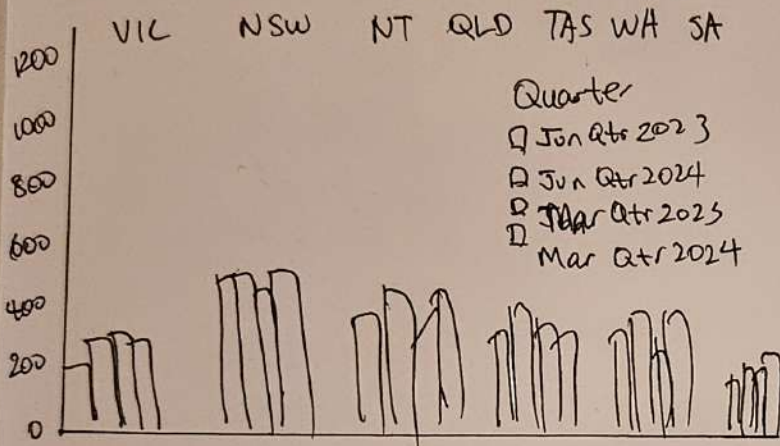 VIC NSW NT QLD TAS WA SA
1200
1000
800
600
400
200
0
Quarter
Jun Qtr 2023
Jun Qtr 2024
Mar Qtr 2023
Mar Qtr 2024